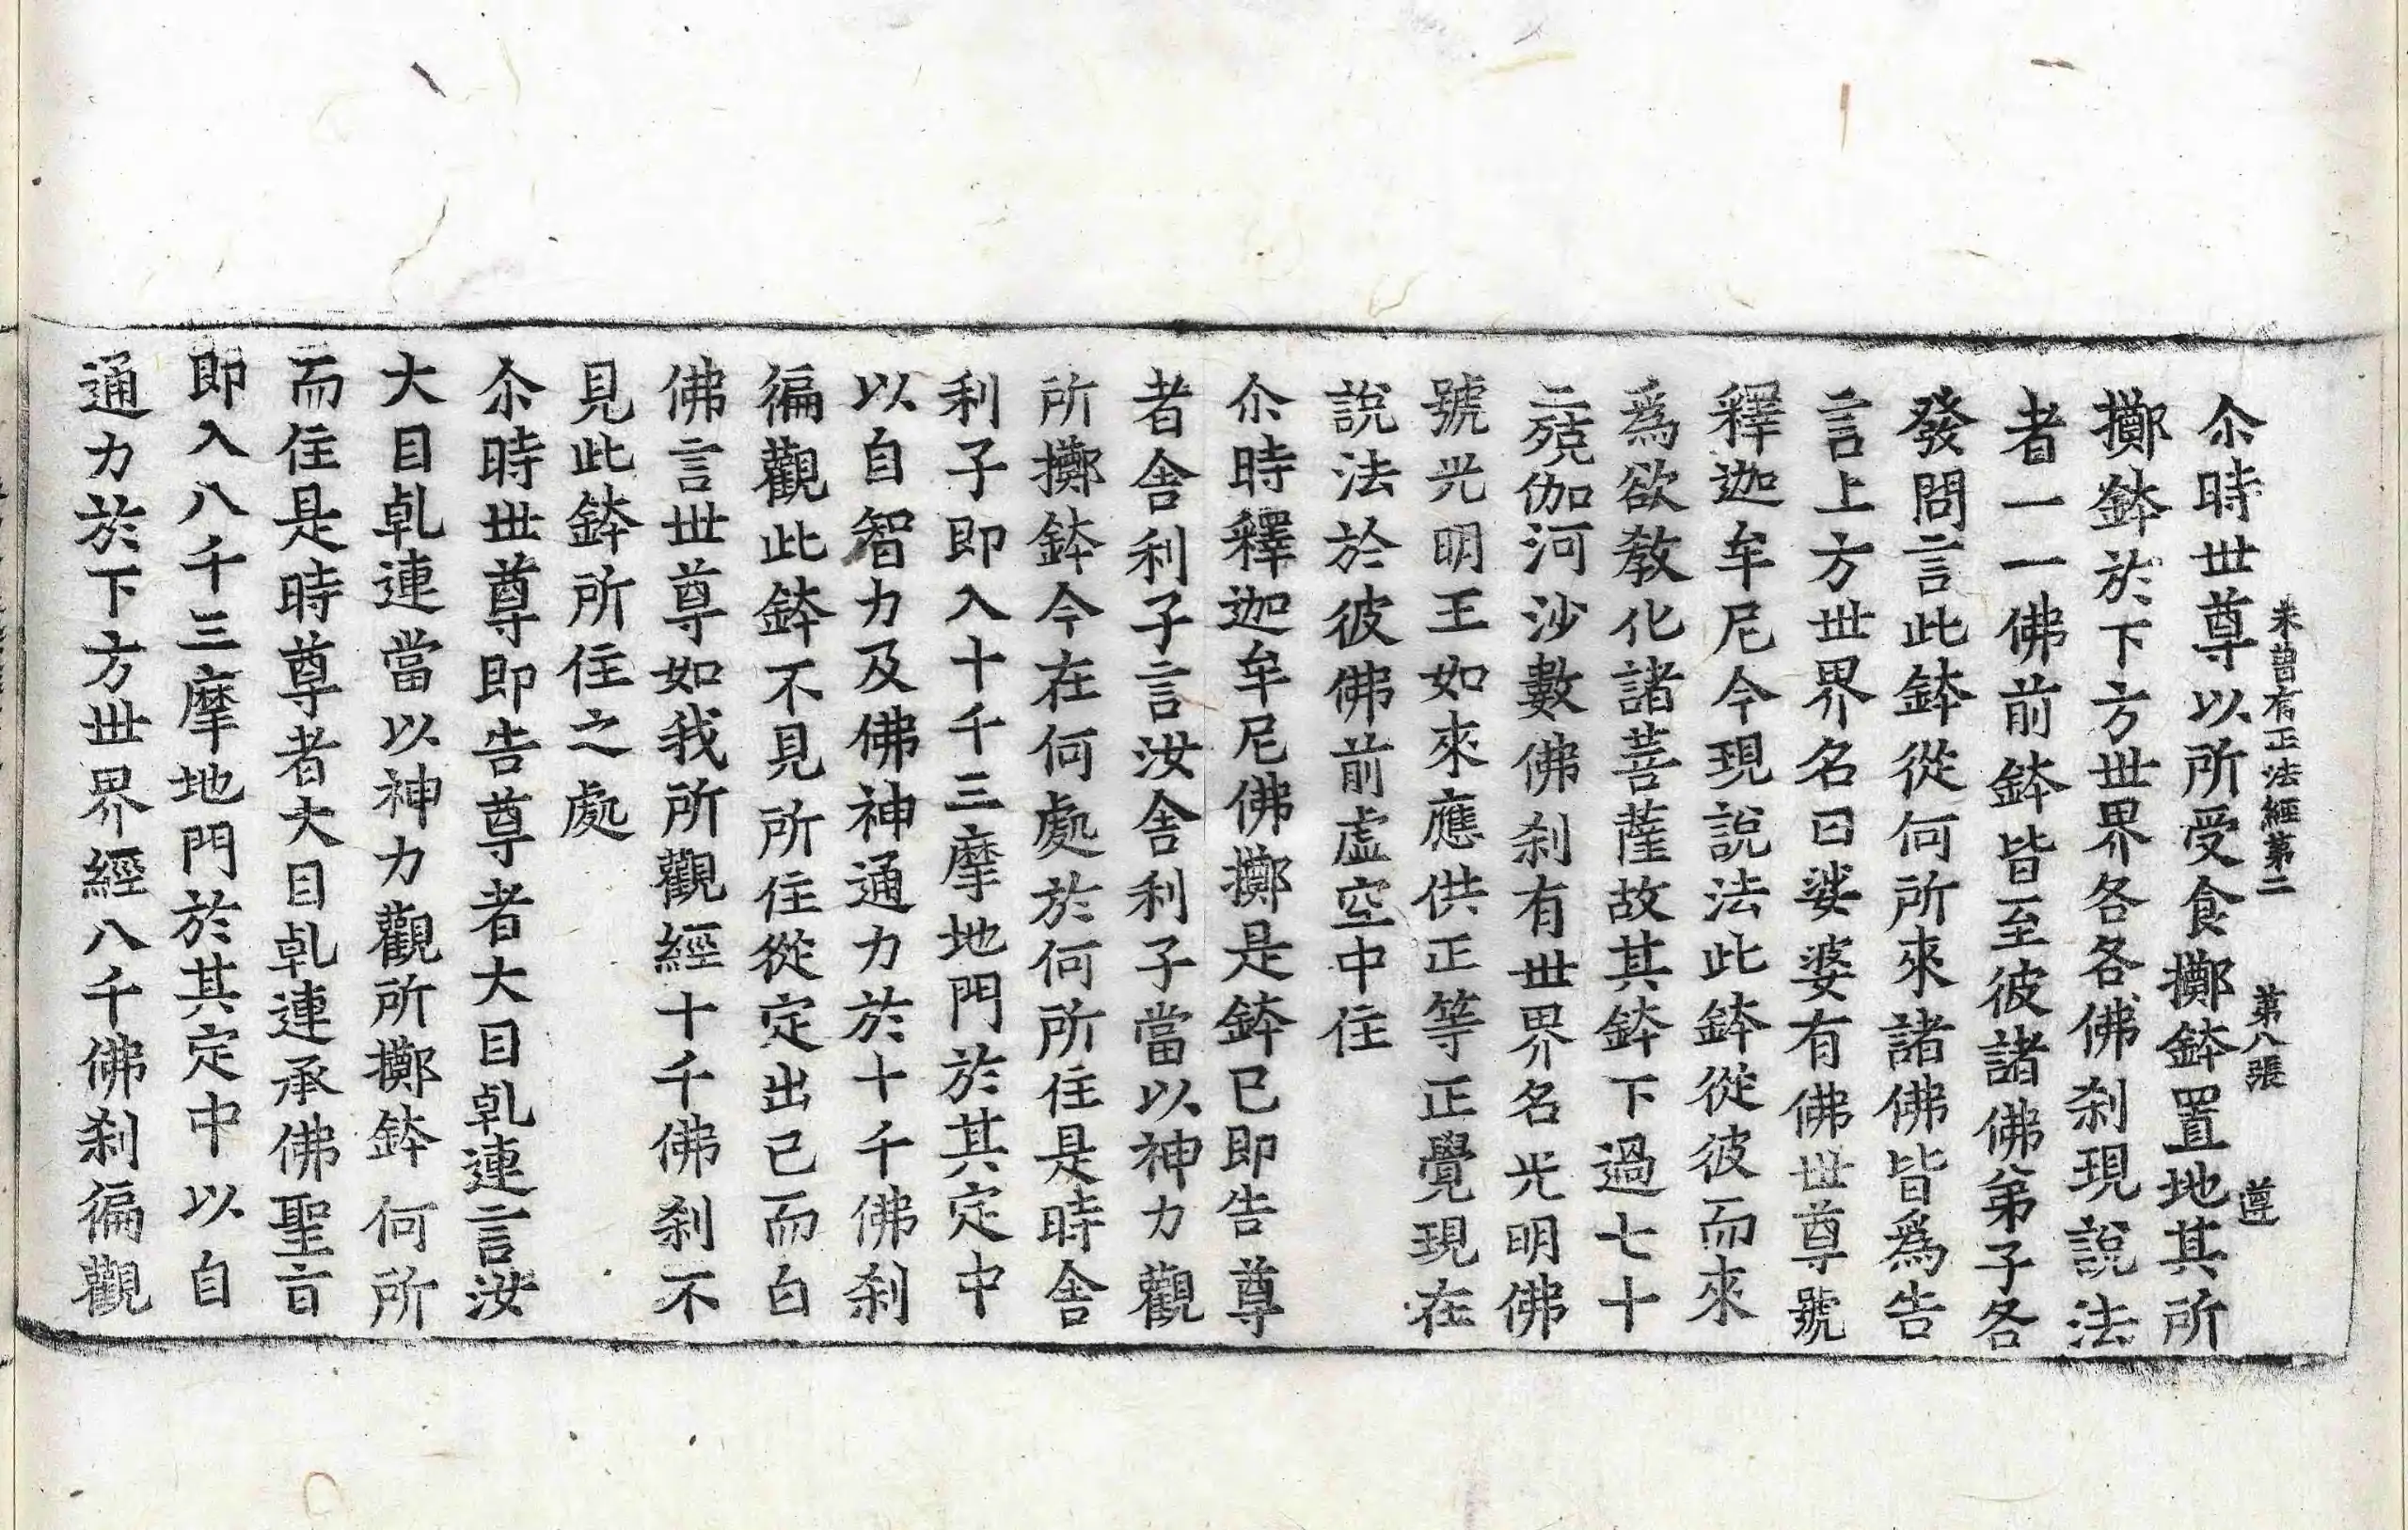 未曾有正法經第二 第八張 遵
尒時世尊以所受食擲鉢置地其所
擲鉢於下方世界各各佛刹現說法
者一一佛前鉢皆至彼諸佛弟子各
發問言此鉢從何所來諸佛皆爲告
言上方世界名曰娑婆有佛世尊號
釋迦牟尼今現說法此鉢從彼而來
爲欲教化諸菩薩故其鉢下過七十
二殑伽河沙數佛刹有世界名光明佛
號光明王如來應供正等正覺現在
說法於彼佛前虛空中住
尒時釋迦牟尼佛擲是鉢已即告尊
者舍利子言汝舍利子當以神力觀
所擲鉢今在何處於何所住是時舍
利子即入十千三摩地門於其定中
以自智力及佛神通力於十千佛刹
徧觀此鉢不見所住從定出已而白
佛言世尊如我所觀經十千佛刹不
見此鉢所住之處
尒時世尊即告尊者大目乹連言汝
大目乹連當以神力觀所擲鉢何所
而住是時尊者大目乹連承佛聖旨
即入八千三摩地門於其定中以自
通力於下方世界經八千佛刹徧觀